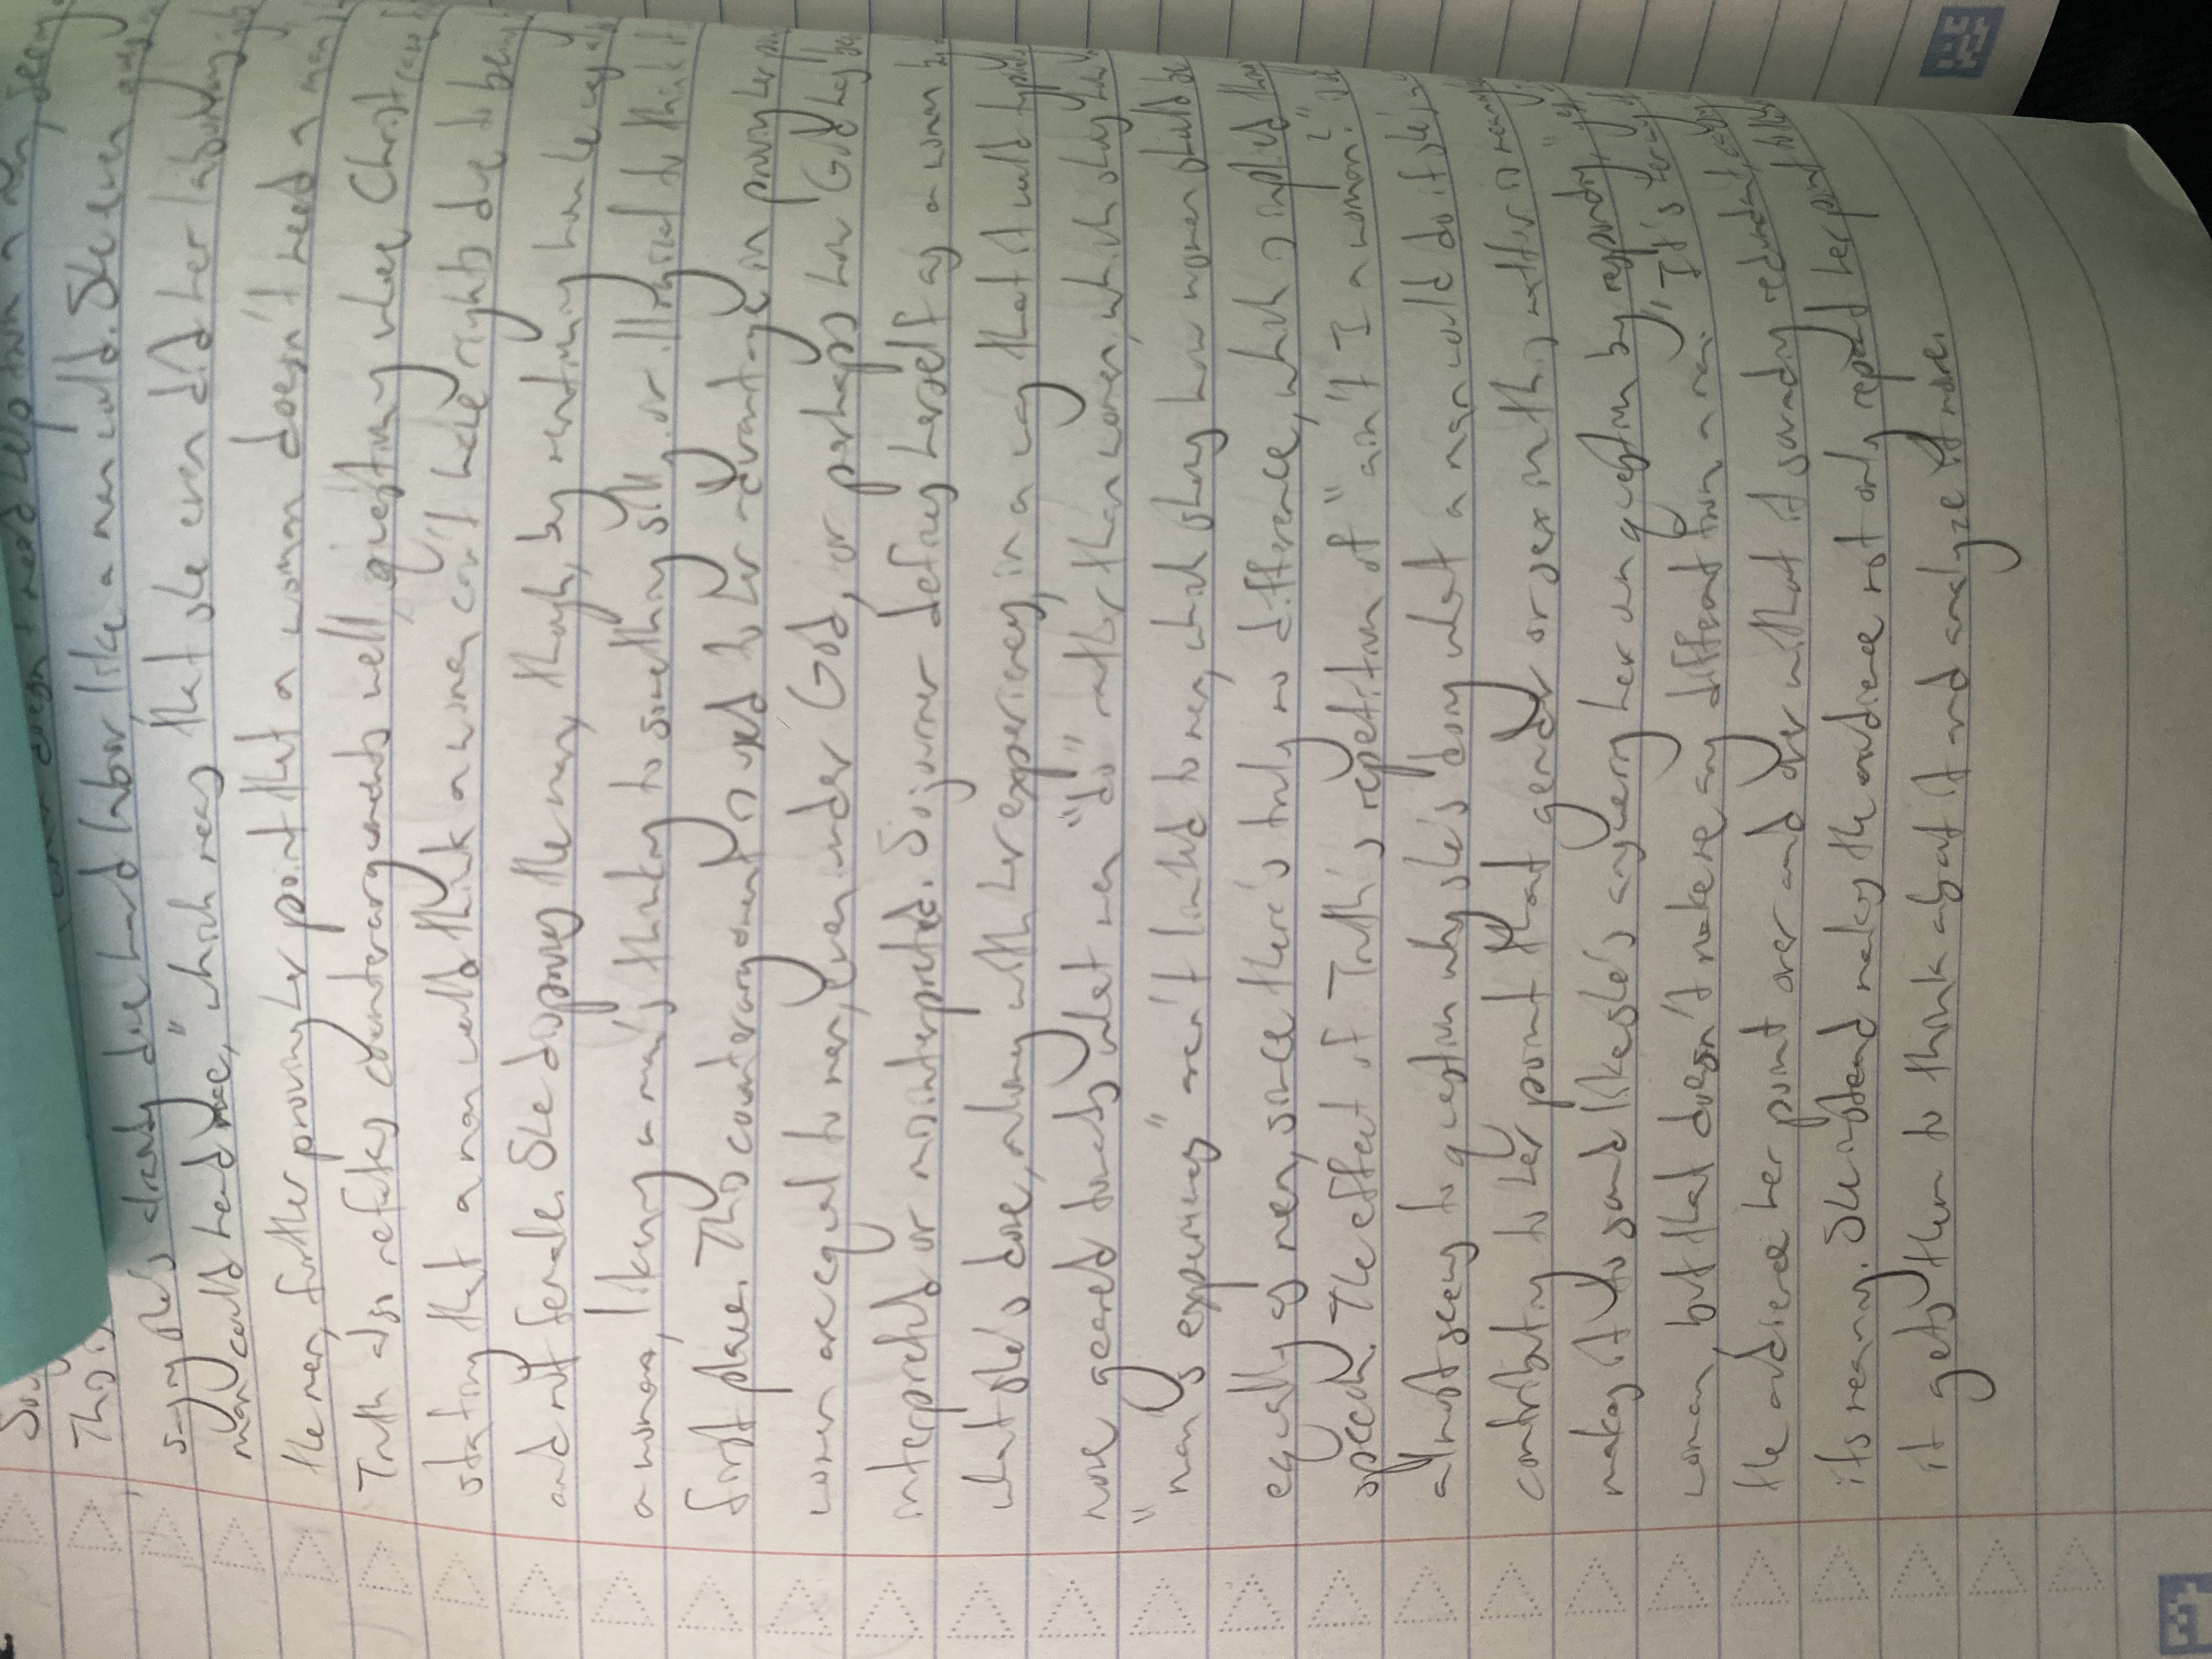 doesn't need help from a man, seeing
This
saying she's already done hard labor like a man could. She even
man could head me," which means that she even did her labor
the men, further proving her point that a woman doesn't need a man
Truth also refutes counterarguments well, questioning where Christ
stating that a man would think a women can't have rights due to being
and not female. She disproves the man, though, by rewriting him
a woman, likening a man's thinking to something silly or illogical to think
first place. This counterargument is used to her advantage in proving her
women are equal to men, even under God, or perhaps how God has
interpreted or misinterpreted. Sojourner defines herself as a woman
what she's done, relaying with her experiences, in a way that it would
more geared towards what men "do" rather than women, which shows how
"man's experiences" aren't limited to men, which shows how women should be
equally as men, since there's truly no difference, which is implied
speech. The effect of Truth's repetition of "ain't I a woman?"
almost seems to question why she's doing what a man would do if she's
contributing to her point that gender or sex in this matter is
makes it to sound like she's answering her own question by responding
woman, but that doesn't make me any different from a man." It's
the audience her point over and over without it sounding redundant
its meaning. She instead makes the audience not only repeat her point
it gets them to think about it and analyze it more.